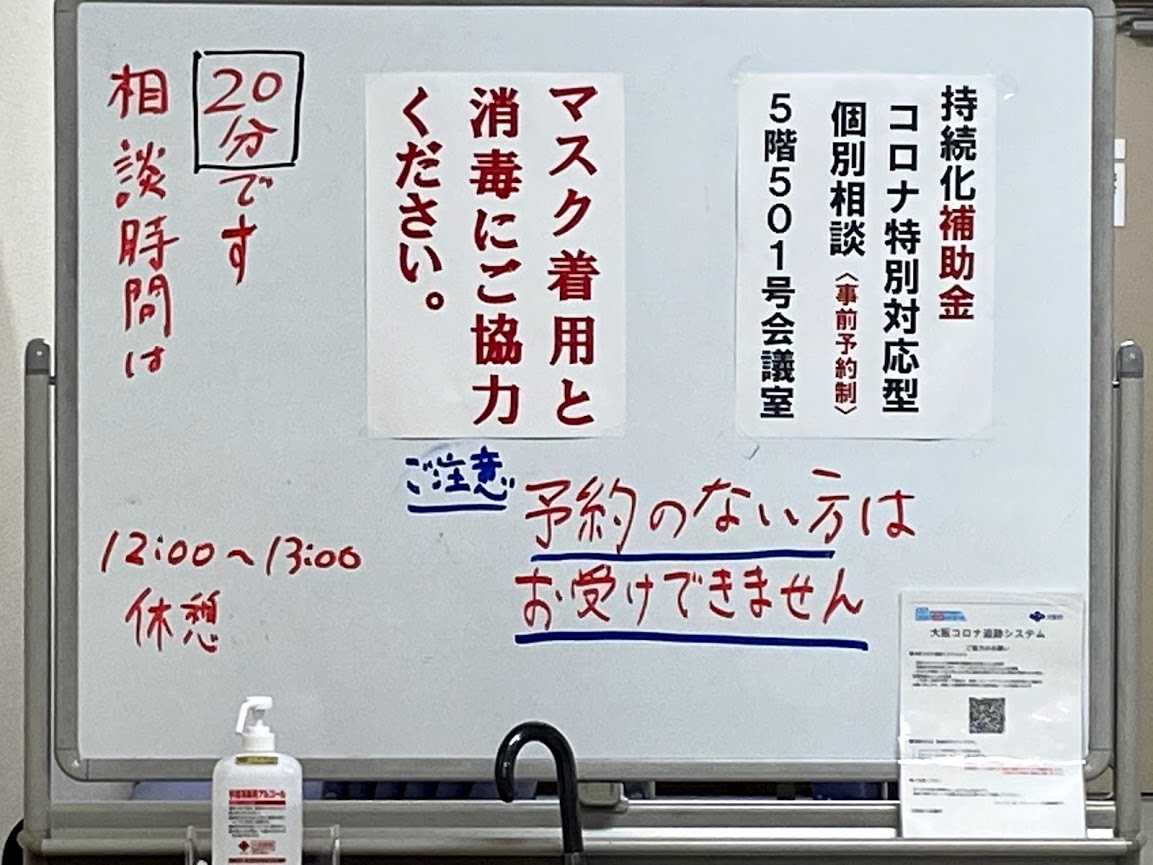 持続化補助金
コロナ特別対応型
個別相談〈事前予約制〉
5階501号会議室
マスク着用と
消毒にご協力
ください。
20分です
相談時間は
ご注意
予約のない方は
お受けできません
12:00~13:00
休憩
大阪コロナ追跡システム
ご協力のお願い
手指消毒用アルコール